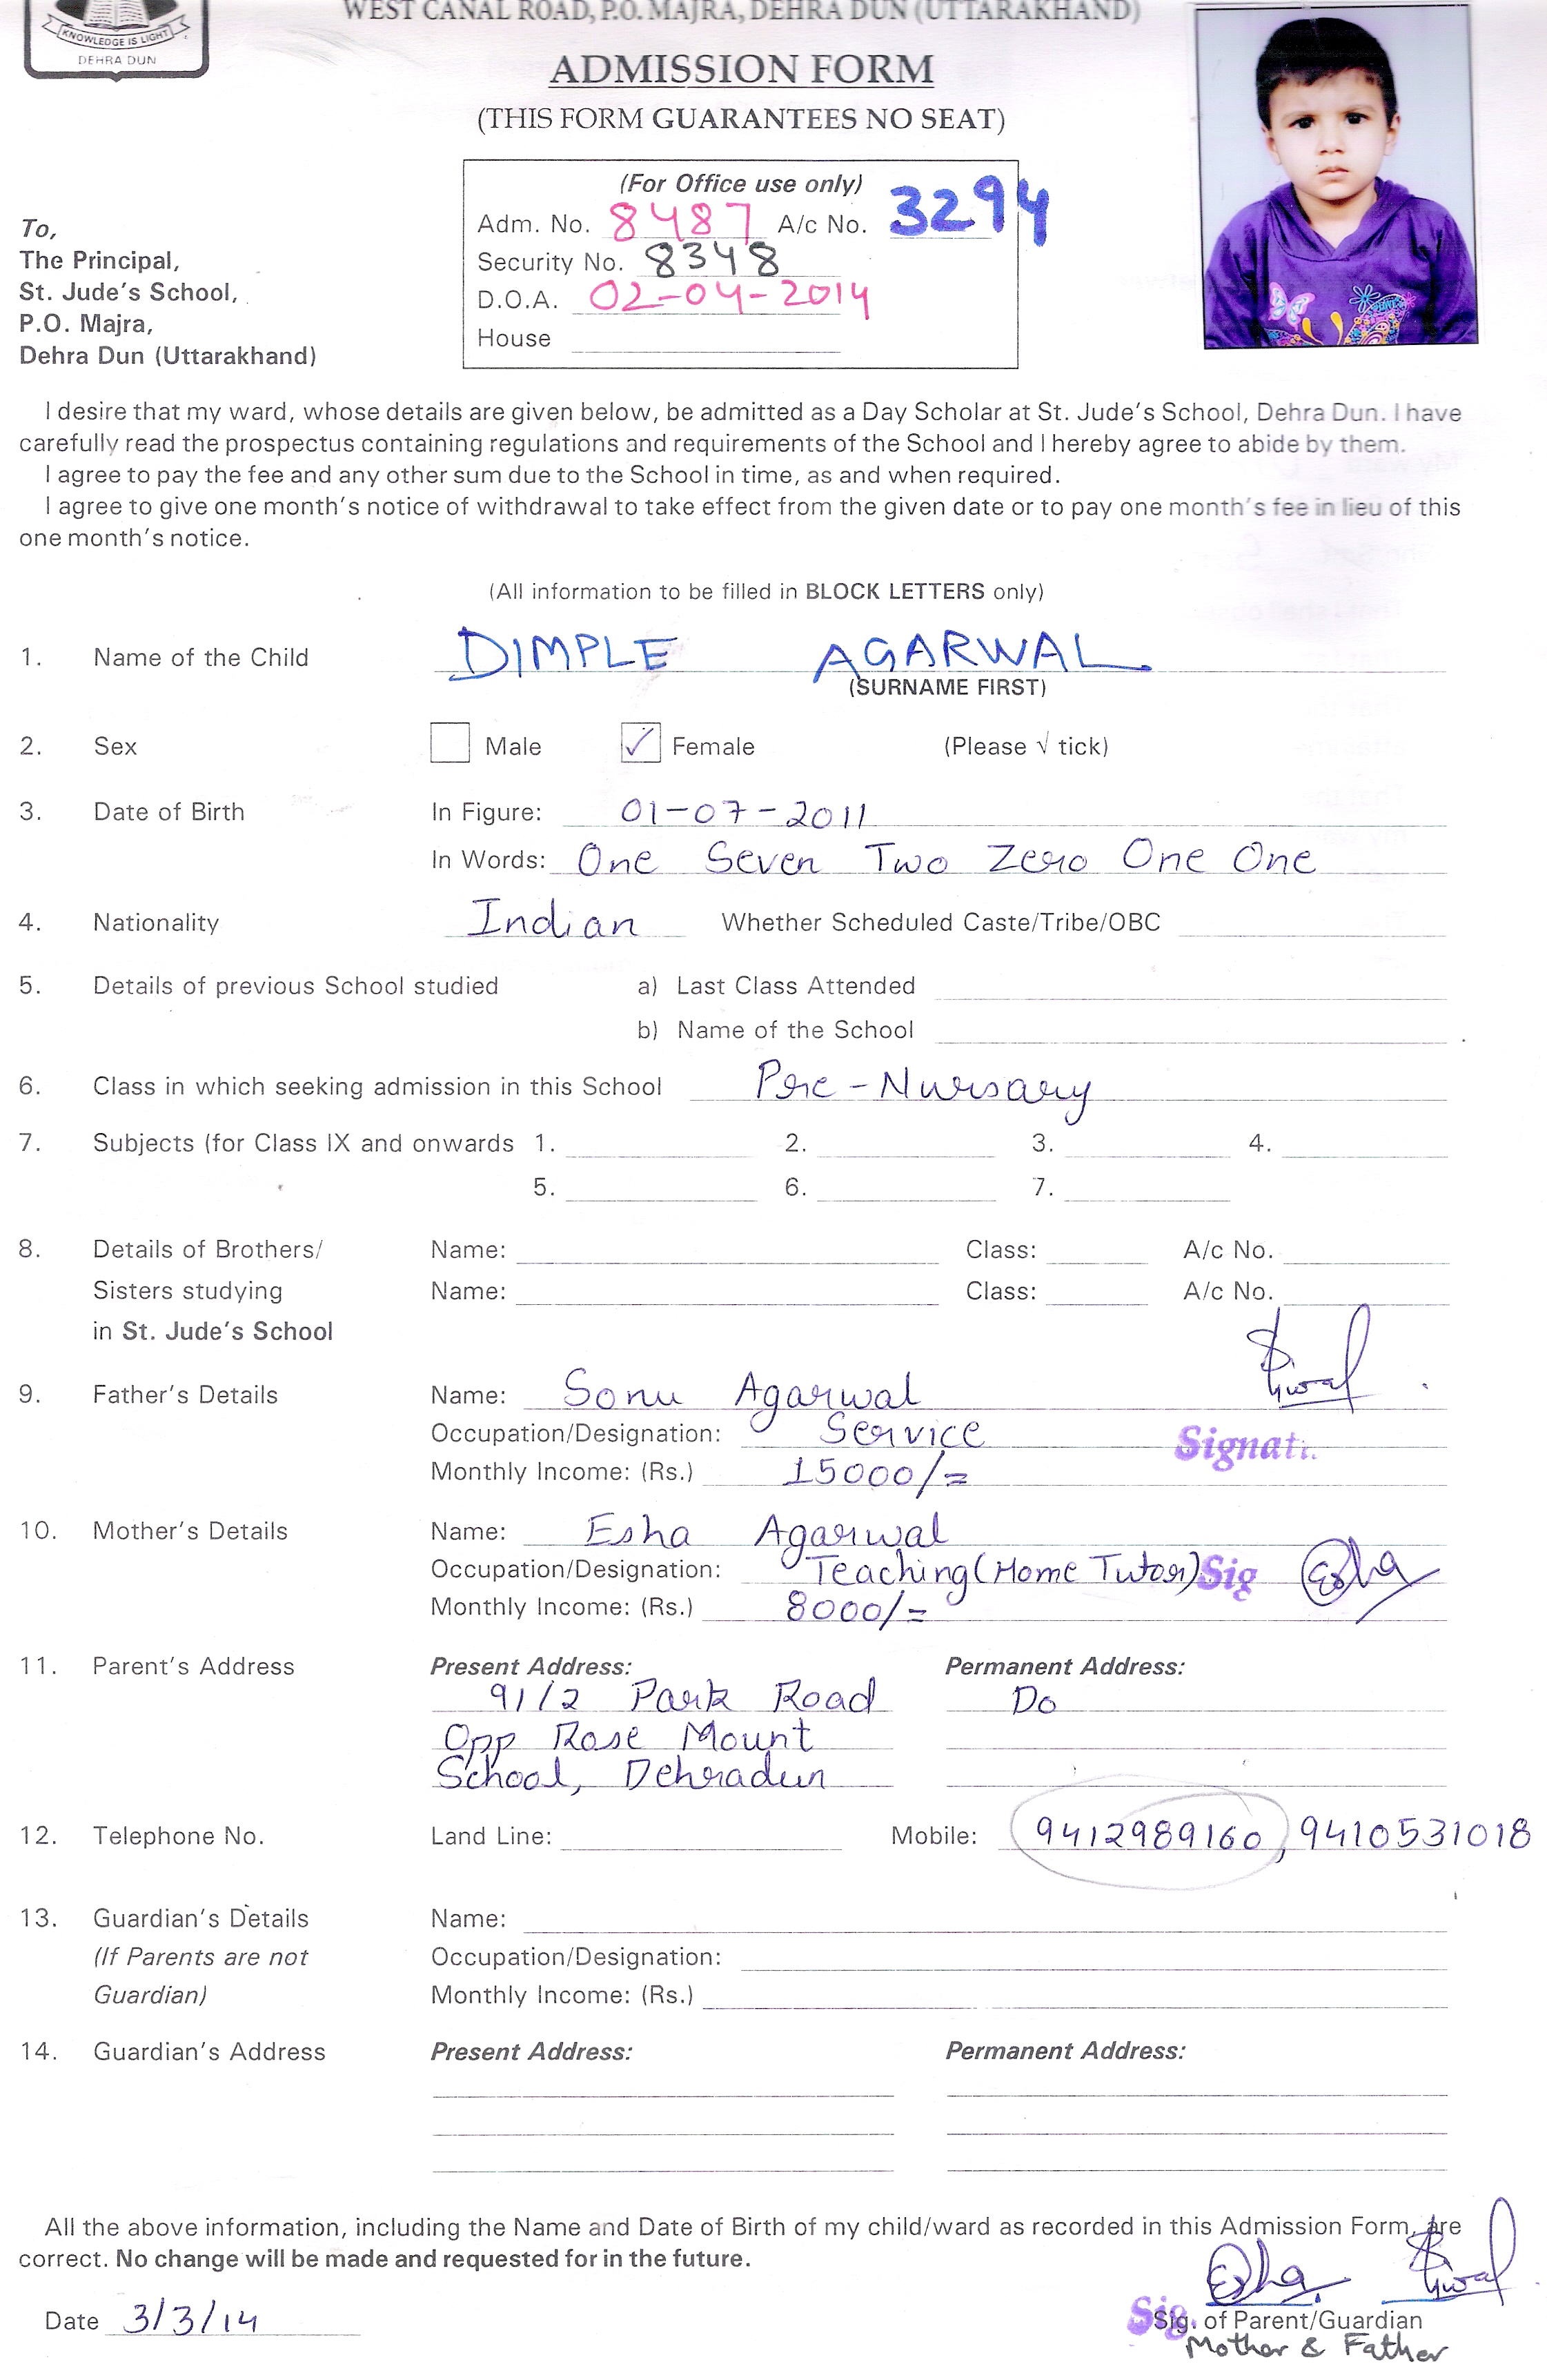 WEST CANAL ROAD, P.O. MAJRA, DEHRA DUN (UTTARAKHAND)
KNOWLEDGE IS LIGHT
DEHRA DUN
ADMISSION FORM
(THIS FORM GUARANTEES NO SEAT)
(For Office use only)
Adm. No. 8487 A/c No. 3294
Security No. 8348
D.O.A. 02-04-2014
House
To,
The Principal,
St. Jude's School,
P.O. Majra,
Dehra Dun (Uttarakhand)
I desire that my ward, whose details are given below, be admitted as a Day Scholar at St. Jude's School, Dehra Dun. I have
carefully read the prospectus containing regulations and requirements of the School and I hereby agree to abide by them.
I agree to pay the fee and any other sum due to the School in time, as and when required.
I agree to give one month's notice of withdrawal to take effect from the given date or to pay one month's fee in lieu of this
one month's notice.
(All information to be filled in BLOCK LETTERS only)
1. Name of the Child DIMPLE AGARWAL
(SURNAME FIRST)
2. Sex Male ✓ Female (Please √ tick)
3. Date of Birth In Figure: 01-07-2011
In Words: One Seven Two Zero One One
4. Nationality Indian Whether Scheduled Caste/Tribe/OBC
5. Details of previous School studied a) Last Class Attended
b) Name of the School
6. Class in which seeking admission in this School Pre-Nursary
7. Subjects (for Class IX and onwards 1. 2. 3. 4.
5. 6. 7.
8. Details of Brothers/ Name: Class: A/c No.
Sisters studying Name: Class: A/c No.
in St. Jude's School
9. Father's Details Name: Sonu Agarwal
Occupation/Designation: Service Signat
Monthly Income: (Rs.) 15000/=
10. Mother's Details Name: Esha Agarwal
Occupation/Designation: Teaching (Home Tutor) Sig Esha
Monthly Income: (Rs.) 8000/=
11. Parent's Address Present Address: Permanent Address:
91/2 Park Road Do
Opp Rose Mount
School, Dehradun
12. Telephone No. Land Line: Mobile: 9412989160, 9410531018
13. Guardian's Details Name:
(If Parents are not Occupation/Designation:
Guardian) Monthly Income: (Rs.)
14. Guardian's Address Present Address: Permanent Address:
All the above information, including the Name and Date of Birth of my child/ward as recorded in this Admission Form, are
correct. No change will be made and requested for in the future.
Esha
Date 3/3/14 Sig. Sig. of Parent/Guardian
Mother & Father